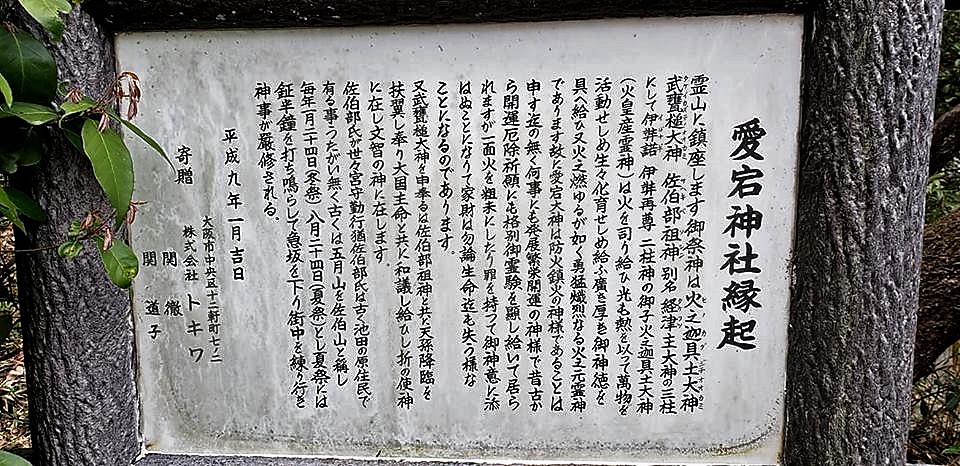 愛宕神社縁起
霊山に鎮座します御祭神は火之迦具土大神
武甕槌大神 佐伯部祖神 別名 経津主大神の三柱
にして伊弉諾 伊弉再尊 二柱神の御子火之迦具土大神
（火皇産霊神）は火を司り給ひ光も熱を以って萬物を
活動せしめ生々化育せしめ給ふ廣き厚き御神徳を
具へ給ひ又火之燃ゆるが如く勇猛熾烈なる火之元霊神
であります故に愛宕大神は防火鎮火の神様であることは
申す迄の無く何事にも発展繁栄開運の神様で昔古か
ら開運厄除祈願にも格別御霊験を顕し給いて居ら
れますが一面火を粗末にしたり罪を持って御神意に添
はぬことになりて家財は勿論生命迄も失う様な
ことになるのであります。
又武甕槌大神を申奉るは佐伯部祖神と共に天孫降臨を
扶翼し奉り大国主命と共に和議し給ひし折の使神
に在し文智の神に在します。
佐伯部氏が世々宮守勤行猶佐伯部氏は古く池田の原住民で
有る事うたがい無く古くは五月山を佐伯山と称し
毎年一月二十四日（冬祭）八月二十四日（夏祭）とし夏祭には
鉦半鐘を打ち鳴らして急坂を下り街中を練り行き
神事が厳修される。
平成九年一月吉日
寄贈
大阪市中央区十二軒町七ノ二
株式会社 トキワ
関 徹
関 道子